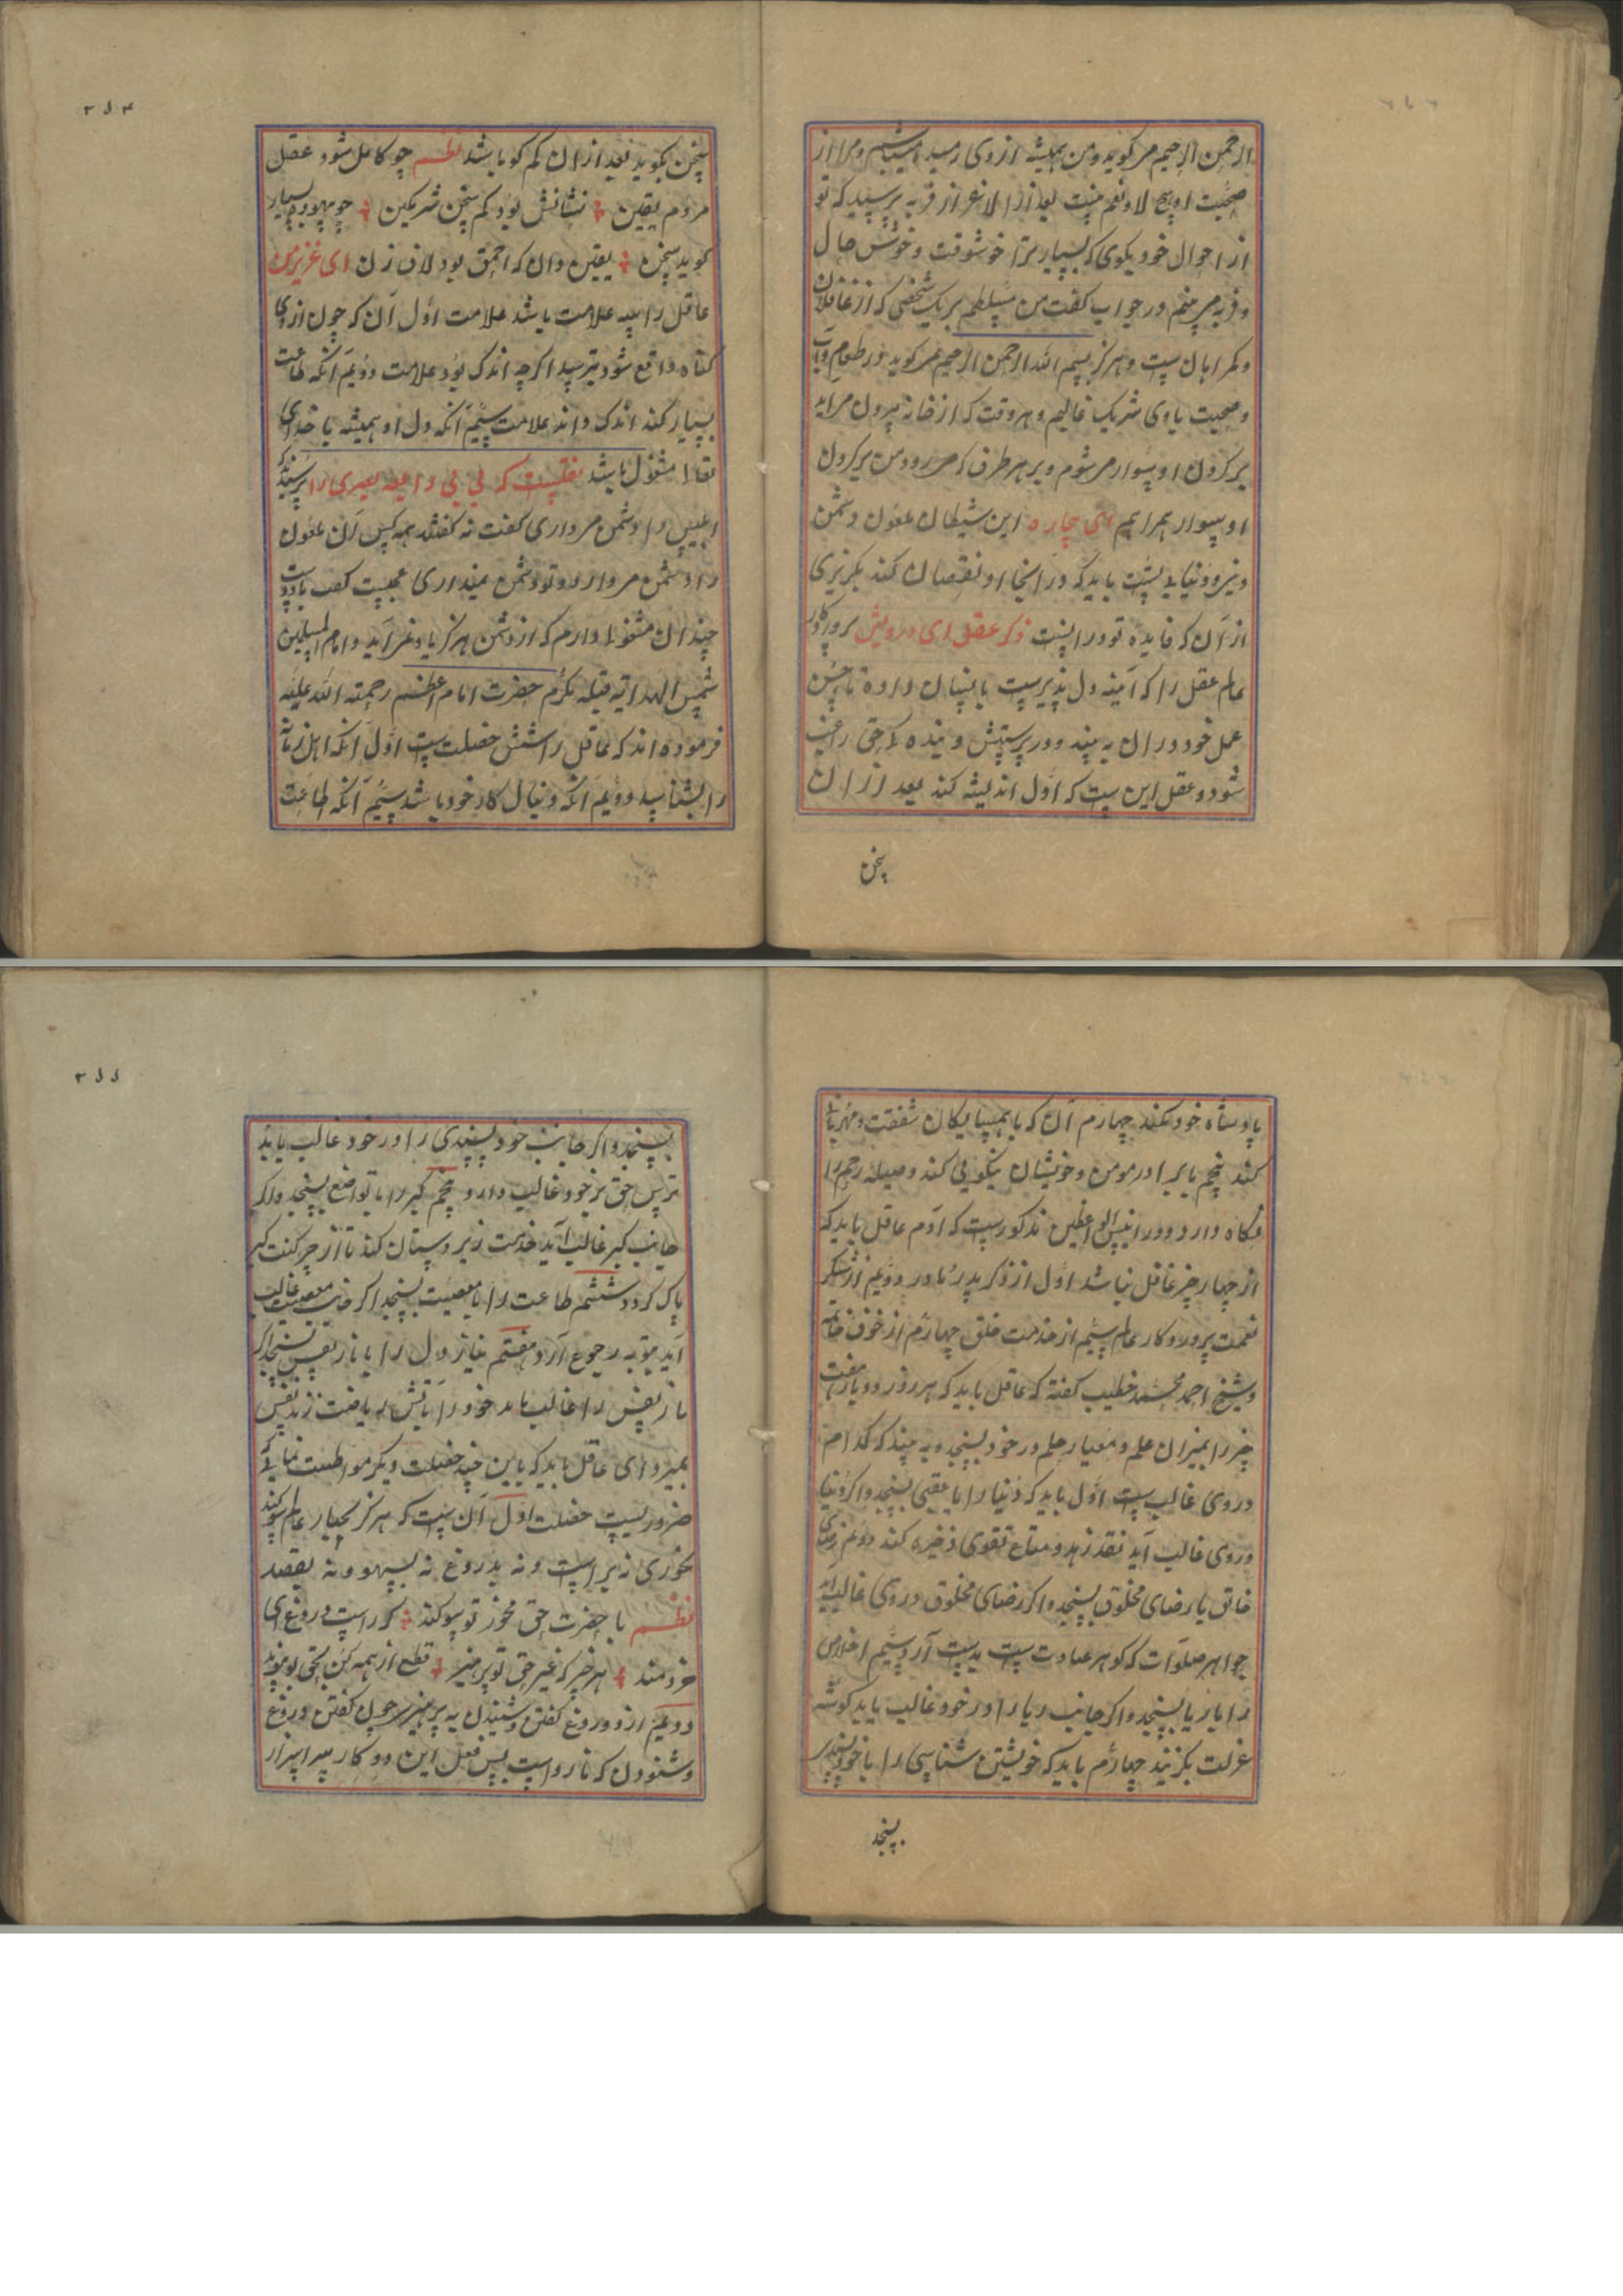 الرحمن الرحیم میگوید و من همیشه از وی رمیده میباشم و مرا از
صحبت او هیچ لاونعم نیست بعد از ان لاغر از فربه پرسید که تو
از احوال خود بکوی که بسیار ترا خوشوقت و خوش حال
و فربه می بینم در جواب کفت من مسلطم بر یک شخصی که از غافلان
و کمراهان ست و هرکز بسم الله الرحمن الرحیم نمیکوید در طعام و آب
و صحبت با وی شریک غالبم و هر وقت که از خانه بیرون می آید
بر کردن او سوار میشوم و بر هر طرف که میرود من بر کردن
او سوار همراهم ای بیچاره این شیطان ملعون دشمن
دین و دنیای تست باید که در اینجا او نقصان کند بکریزی
از آن که فایده تو در انست ذکر عقل ای درویش پروردکار
عالم عقل را که آینه دل پذیر ست بانسان داده تا حسن
عمل خود در ان به بیند و در پرستش و بنده کی حق راغب
شود و عقل این ست که اول اندیشه کند بعد از ان
سخن
۲۵۴
سخن بکوید بعد از ان کم کو باشد نظم چو کامل شود عقل
مردم یقین نشانش بود کم سخن شریکین چو بیهوده بسیار
کوید سخن یقین دان که احمق بود لاف زن ای عزیز من
عاقل را سه علامت باشد علامت اول آن که چون از وی
کناه واقع شود بترسد اکرچه اندک بود علامت دویم آنکه طاعت
بسیار کند اندک داند علامت سیم آنکه دل او همیشه با خدای
تعالی مشغول باشد نقلست که بی بی رابعه بصری را پرسیدند که
ابلیس را دشمن میداری کفت نه کفتند همه کس آن ملعون
را دشمن میدارد و تو دشمن نمیداری عجبست کفت با دوست
چندان مشغولی دارم که از دشمن هرکز یاد نمی آید و امام المسلمین
شمس الهدایه قبله مکرم حضرت امام اعظم رحمته الله علیه
فرموده اند که عاقل را شش خصلت ست اول آنکه اهل زمانه
را بشناسد دویم آنکه دنبال کار خود باشد سیم آنکه طاعت
پادشاه خود کند چهارم آن که با همسایکان شفقت و مهربانی
کند پنجم با برادر مومن و خویشان نیکویی کند و صیله رحم را
نکاه دارد و در انیس الواعظین مذکور ست که آدم عاقل باید که
از چهار چیز غافل نباشد اول از ذکر پدر و مادر دویم از شکر
نعمت پروردکار عالم سیم از خدمت خلق چهارم از خوف خاتمه
و شیخ احمد محمد خطیب کفته که عاقل باید که هر روز دو بار هفت
چیز را بمیزان علم و معیار حلم در خود بسنجد و به بیند که کدام
در وی غالب ست اول باید که دنیا را با عقبی بسنجد و اکر دنیا
در وی غالب آید نقد زهد و متاع تقوی ذخیره کند دویم رضای
خالق با رضای مخلوق بسنجد و اکر رضای مخلوق در وی غالب آید
جواهر صلوات که کوهر عبادت ست بدست آرد سیم اخلاص
را با ریا بسنجد و اکر جانب ریا را در خود غالب یابد کوشه
عزلت بکزیند چهارم باید که خویشتن شناسی را با خود پسندی
بسنجد
۲۵۵
بسنجد و اکر جانب خود پسندی را در خود غالب یابد
ترس حق بر خود غالب دارد پنجم کبر را با تواضع بسنجد و اکر
جانب کبر غالب آید خدمت زیر دستان کند تا از چرکنت کبر
پاک کردد ششم طاعت را با معصیت بسنجد اکر جانب معصیت غالب
آید بتوبه رجوع آرد هفتم نیاز دل را با ناز نفس بسنجد اکر
ناز نفس را غالب یابد خود را بآتش ریاضت زند نفس
بمیرد ای عاقل باید که باین چند خصلت دیکر مواظبت نمایی که
ضروریست خصلت اول آن ست که هرکز بجبار عالم سوکند
نخوری نه براست و نه بدروغ نه بسهو و نه بقصد
نظم با حضرت حق مخور تو سوکند کر راست دروغ ای
خردمند هر چیز که غیر حق تو پرهیز قطع از همه کن بحق بپیوند
دویم از دروغ کفتن و شنیدن به پرهیز چون کفتن دروغ
و شنودن که نارواست پس فعل این دو کار سراسر